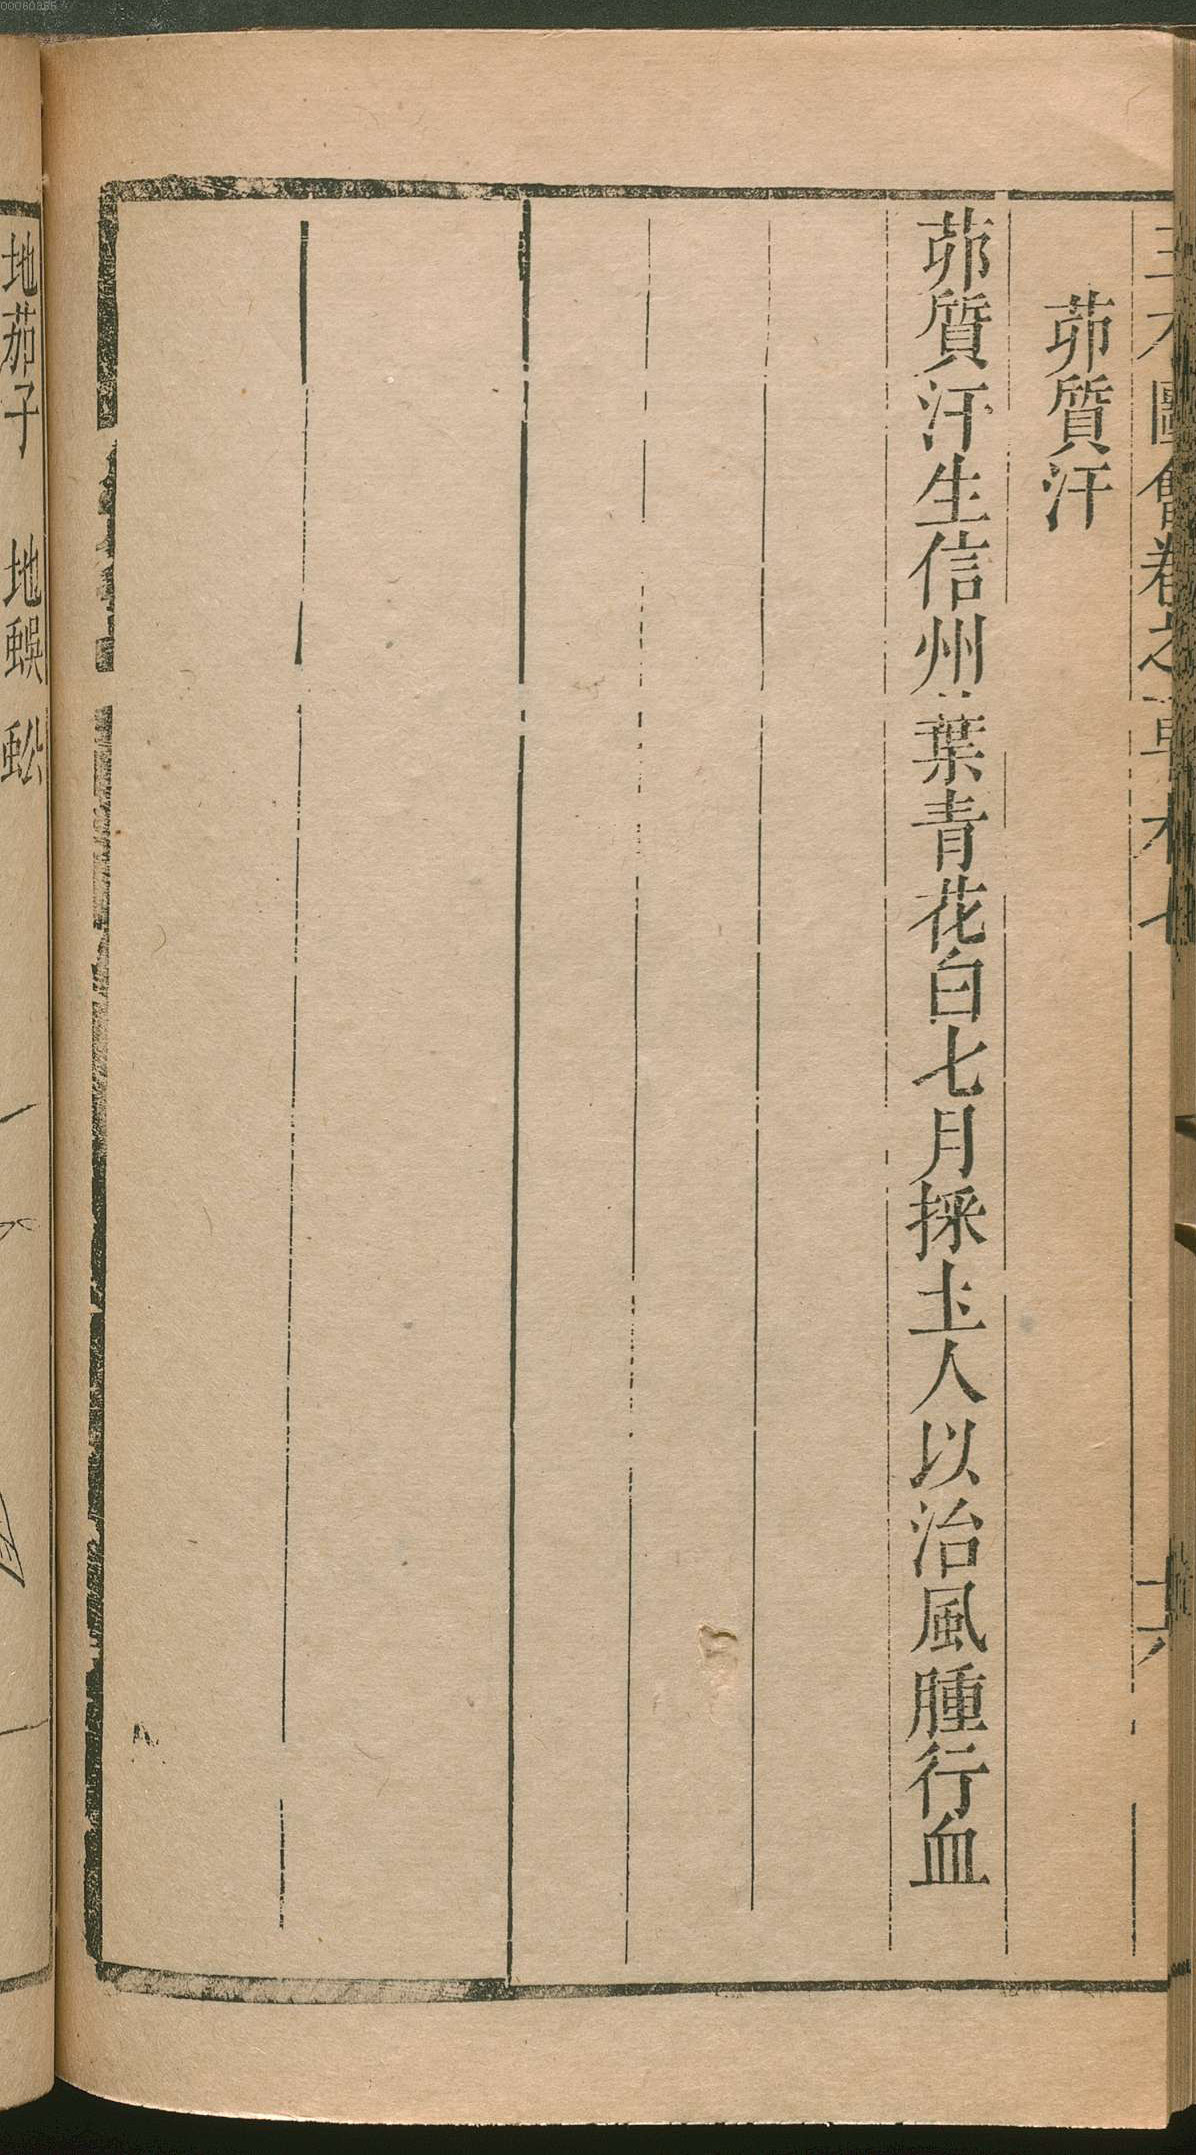 三才圖會卷之草木七 十六
茆質汗
茆質汗生信州葉青花白七月採𡈽人以治風腫行血
地茄子 地蜈蚣
00060355